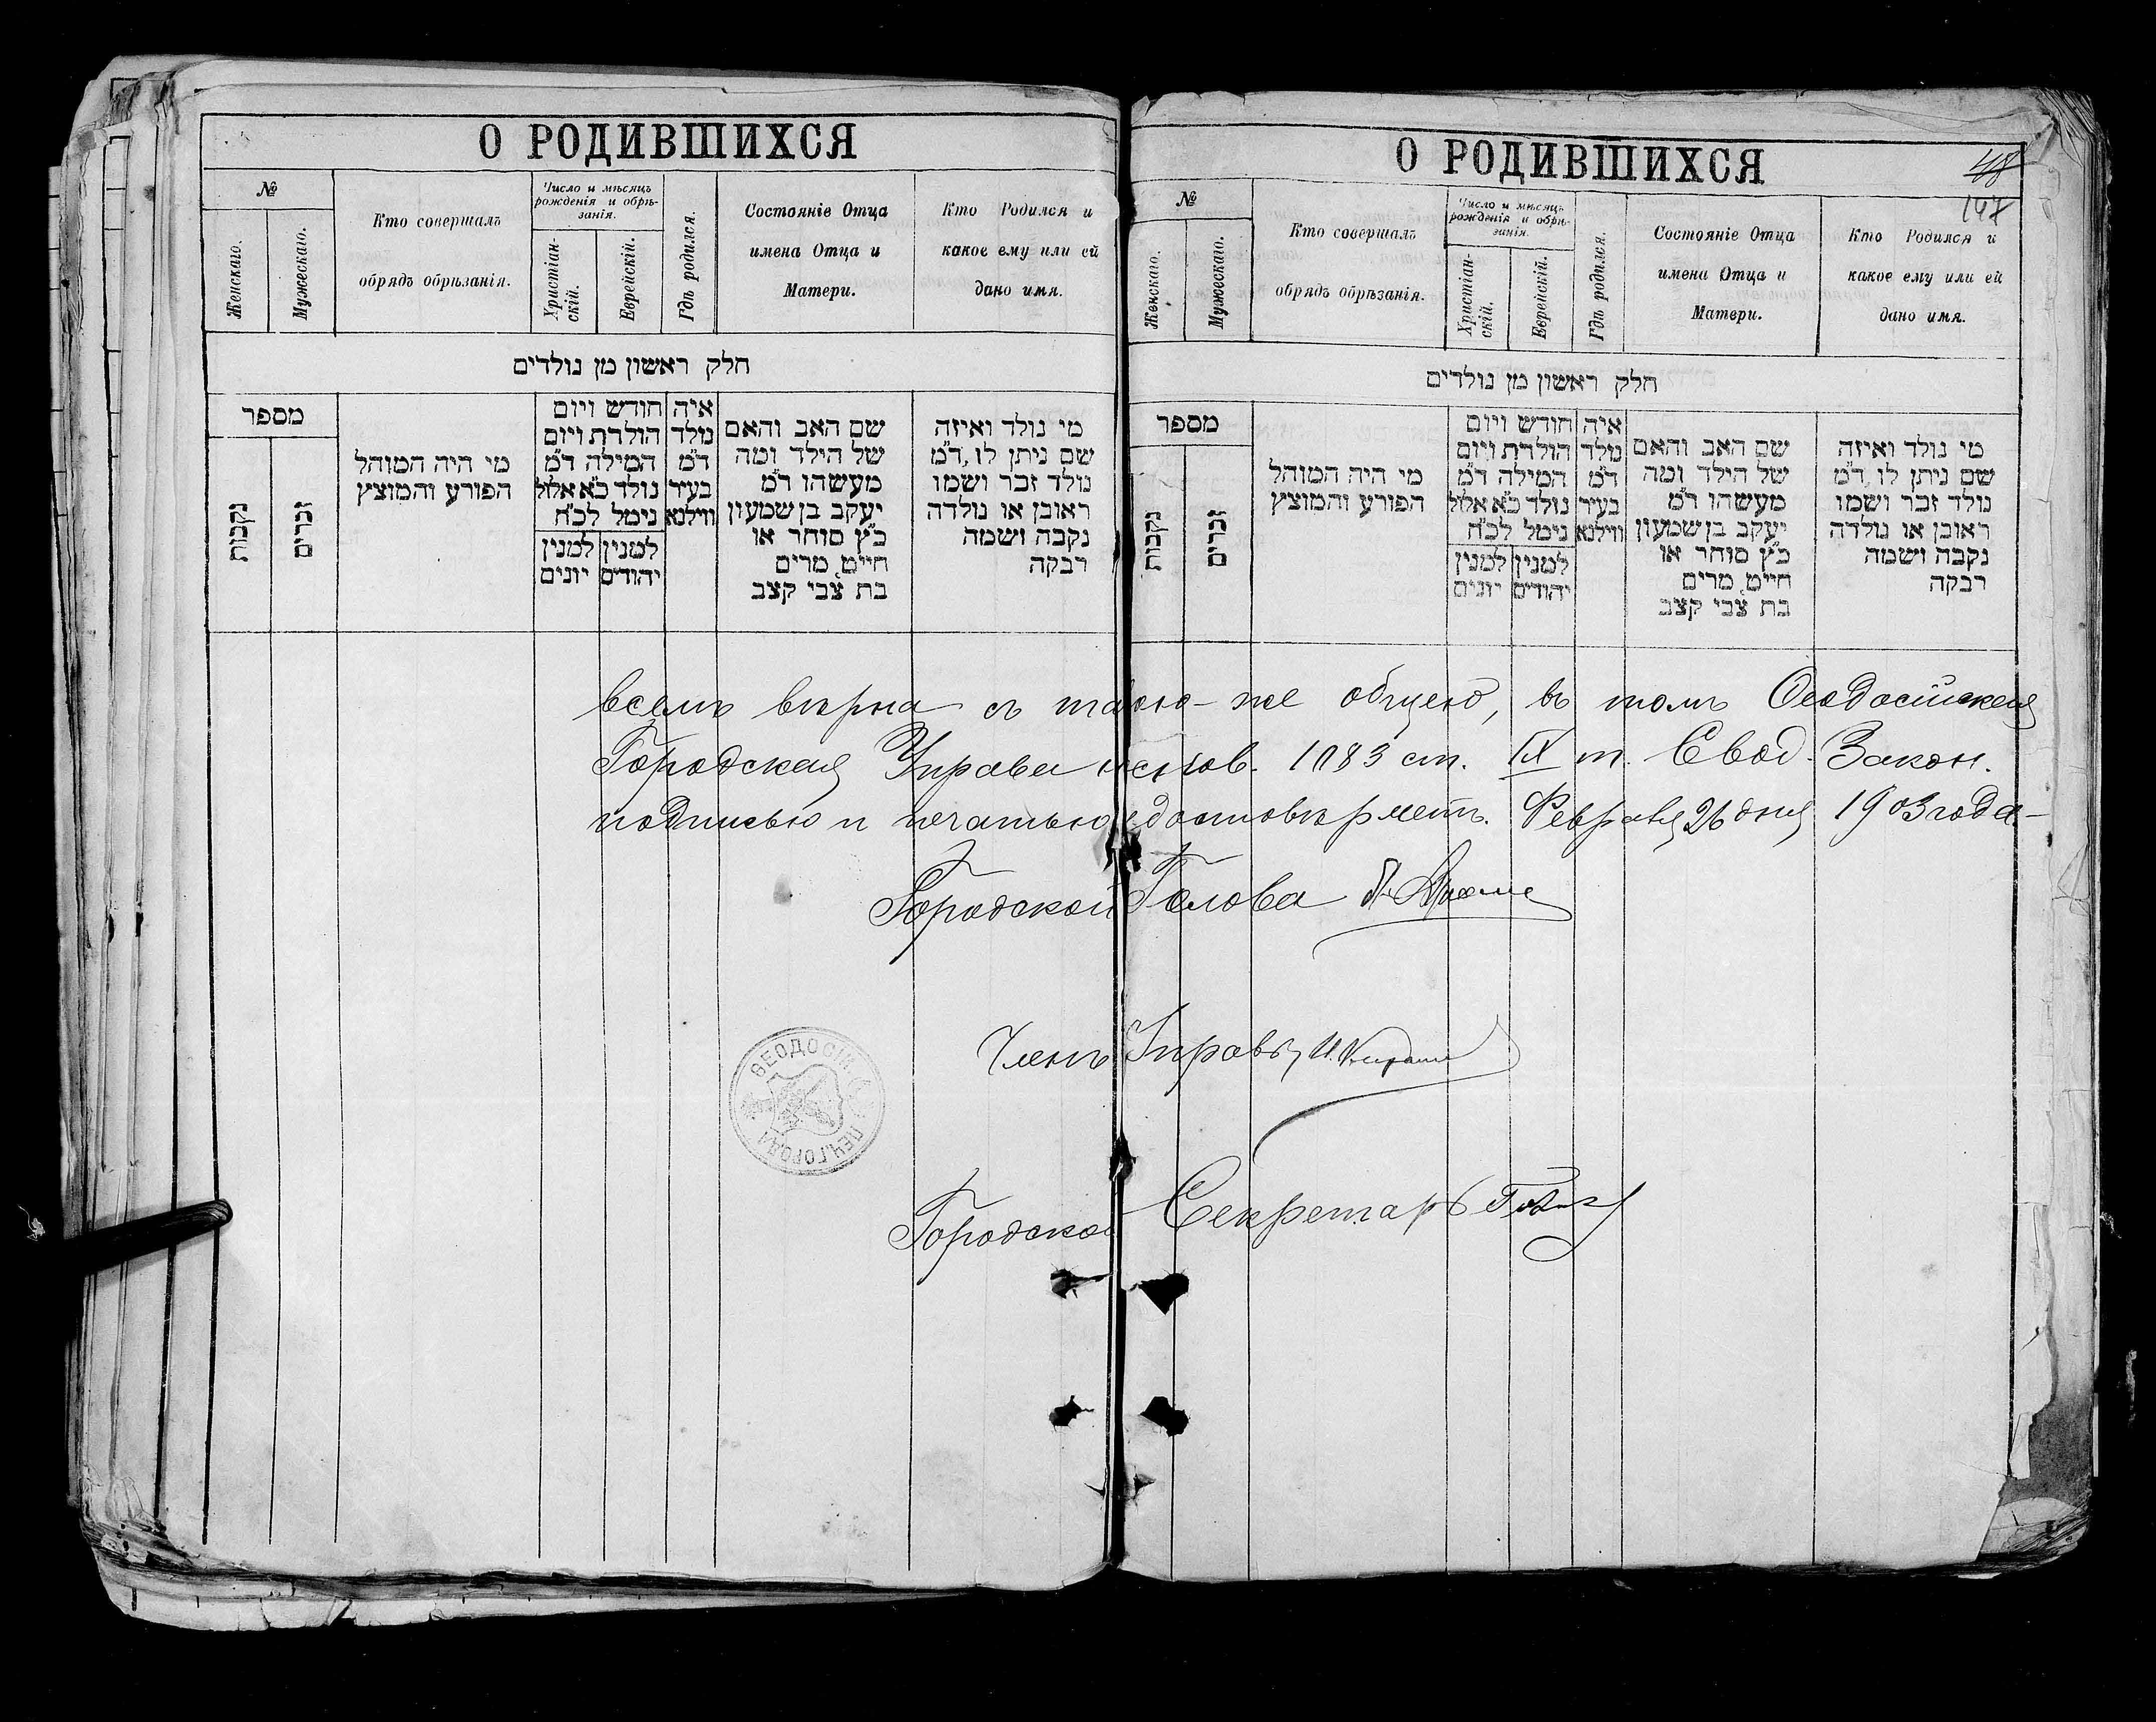 О РОДИВШИХСЯ
№
Женскаго.
Мужескаго.
Кто совершалъ
обрядъ обрѣзанія.
Число и мѣсяцъ
рожденія и обрѣ-
занія.
Христіан-
скій.
Еврейскій.
Гдѣ родился.
Состояніе Отца
имена Отца и
Матери.
Кто Родился и
какое ему или ей
дано имя.
חלק ראשון מן נולדים
מספר
נקבות
זכרים
מי היה המוהל
הפורע והמוצץ
חודש ויום
הולדת ויום
המילה ד"מ
נולד כ"א אלול
נימל לכ"ח
למנין
יונים
למנין
יהודים
איה
נולד
ד"מ
בעיר
ווילנא
שם האב והאם
של הילד ומה
מעשהו ד"מ
יעקב בן שמעון
כ"ץ סוחר או
חייט, מרים
בת צבי קצב
מי נולד ואיזה
שם ניתן לו, ד"מ
נולד זכר ושמו
ראובן או נולדה
נקבה ושמה
רבקה
О РОДИВШИХСЯ
48
147
№
Женскаго.
Мужескаго.
Кто совершалъ
обрядъ обрѣзанія.
Число и мѣсяцъ
рожденія и обрѣ-
занія.
Христіан-
скій.
Еврейскій.
Гдѣ родился.
Состояніе Отца
имена Отца и
Матери.
Кто Родился и
какое ему или ей
дано имя.
חלק ראשון מן נולדים
מספר
נקבות
זכרים
מי היה המוהל
הפורע והמוצץ
חודש ויום
הולדת ויום
המילה ד"מ
נולד כ"א אלול
נימל לכ"ח
למנין
יונים
למנין
יהודים
איה
נולד
ד"מ
בעיר
ווילנא
שם האב והאם
של הילד ומה
מעשהו ד"מ
יעקב בן שמעון
כ"ץ סוחר או
חייט, מרים
בת צבי קצב
מי נולד ואיזה
שם ניתן לו, ד"מ
נולד זכר ושמו
ראובן או נולדה
נקבה ושמה
רבקה
всемъ вѣрна съ такою-же общею, въ томъ Ѳеодосійская
Городская Управа на основ. 1083 ст. IX т. Свод. Закон.
подписью и печатью удостовѣряетъ. Февраля 26 дня 1903 года.-
Городской Голова
Членъ Управы
ѲЕОДОСІЙ
ГОРОД
Городской Секретарь